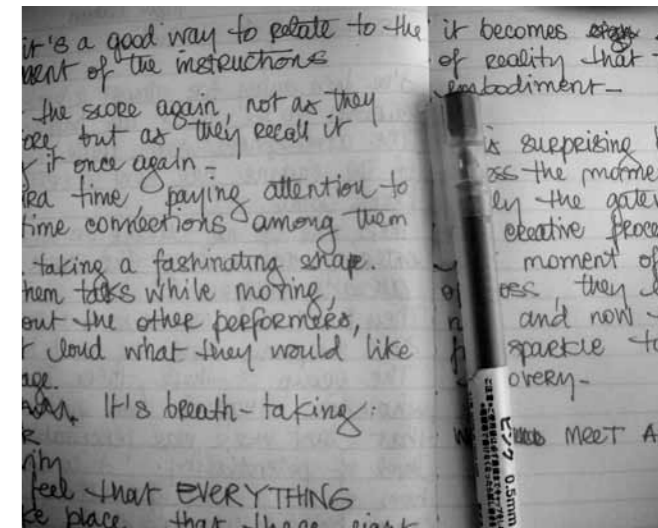 it's a good way to relate to the
ment of the instructions
the score again, not as they
but as they recall it
it once again -
time, paying attention to
time connections among them
taking a fashinating shape.
hem talks while moving,
out the other performers,
loud what they would like
age.
It's breath-taking:
rity
feel that EVERYTHING
place, that these eight
it becomes
of reality that
embodiment -
is surprising
the mome
the gatew
creative proce
moment of
oss, they
and now
sparkle to
overy -
MEET A
ピンク 0.5mm